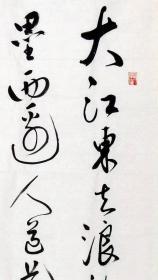 大江東去浪
壘西邊人道是